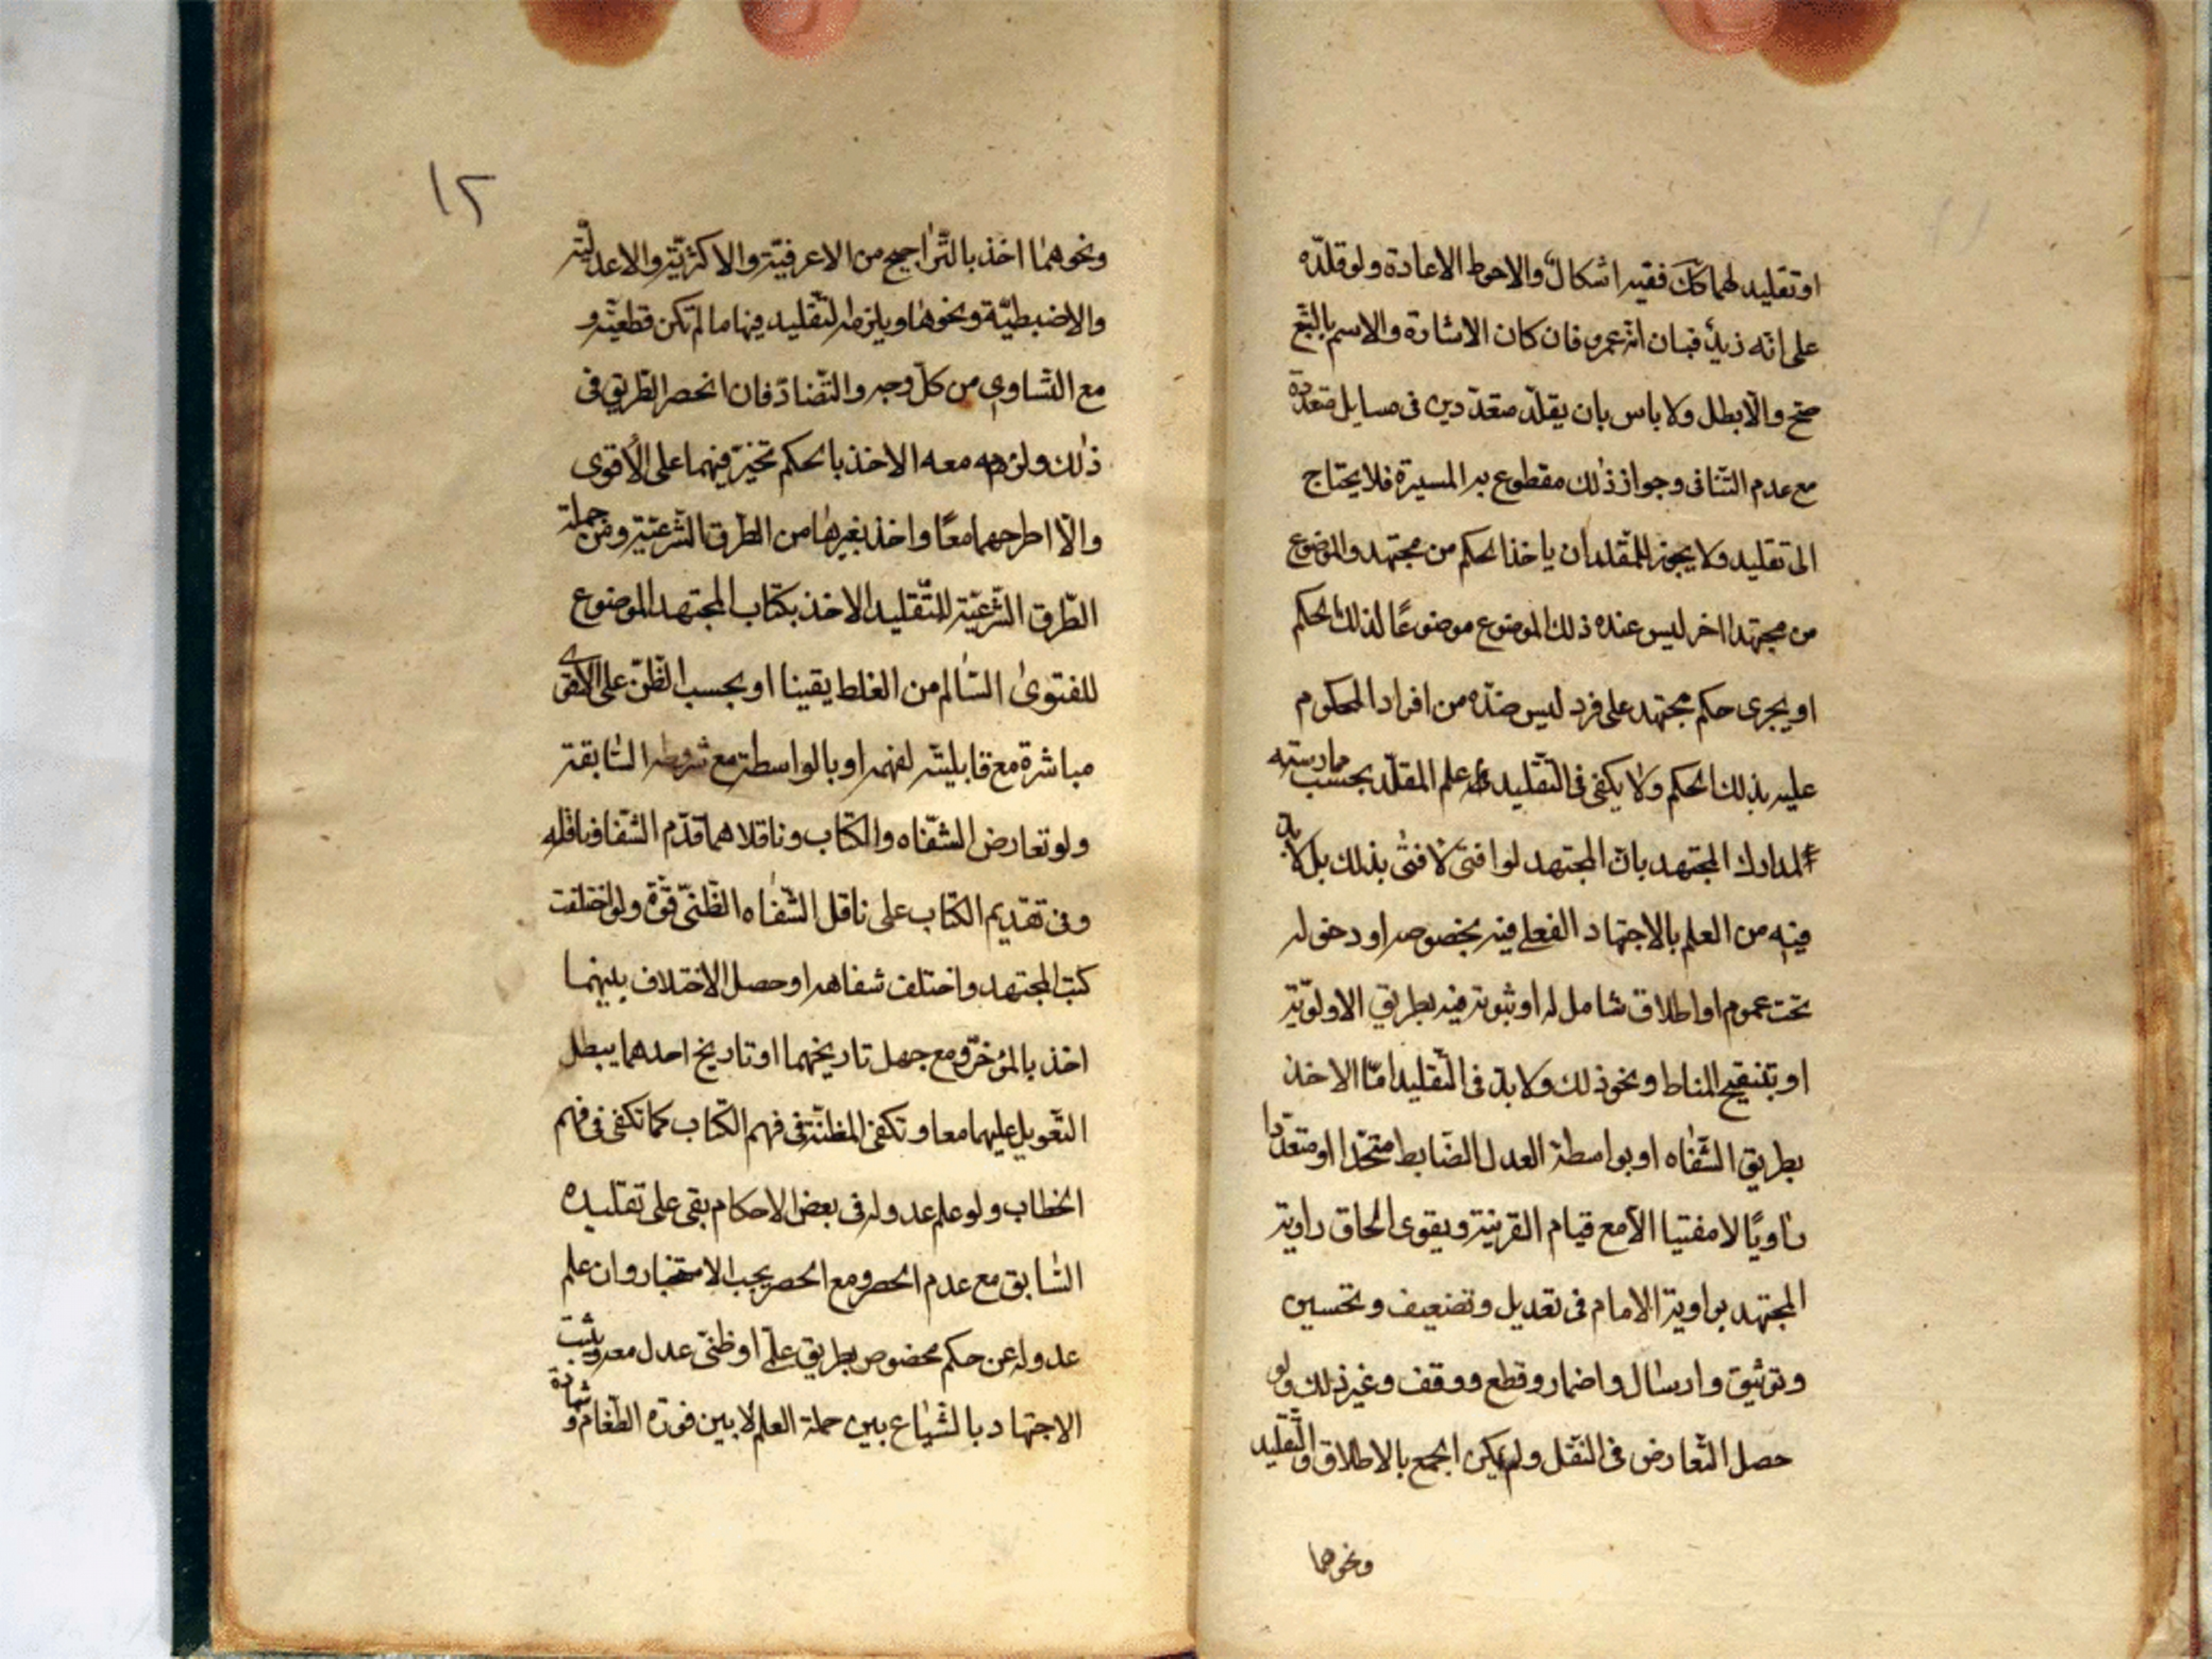 او تقليد لهما كك ففيه اشكال والاحوط الاعادة ولو قلّده
على انّه زيد فبان انّه عمرو فان كان الاشارة والاسم بالتبع
صحّ والّا بطل ولا باس بان يقلّد متعدّدين فى مسايل متعدّدة
مع عدم التنافى وجواز ذلك مقطوع به المسيرة فلا يحتاج
الى تقليد ولا يجوز للمقلد ان ياخذ الحكم من مجتهد والموضوع
من مجتهد اخر ليس عنده ذلك الموضوع موضوعًا لذلك الحكم
او يجرى حكم مجتهد على فرد ليس عنده من افراد المحكوم
عليه بذلك الحكم ولا يكفى فى التقليد علم المقلّد بحسب ممارسته
لمدارك المجتهد بانّ المجتهد لو افتى لافتى بذلك بل لا بد
فيه من العلم بالاجتهاد الفعلى فيه بخصوصه او دخوله
تحت عموم او اطلاق شامل له او ثبوته فيه بطريق الاولويّة
او بتنقيح المناط ونحو ذلك ولا بدّ فى التقليد امّا الاخذ
بطريق الشفاه او بواسطة العدل الضابط متحّدا او متعدّدا
راويًا لا مفتيا الّا مع قيام القرينة ويقوى الحاق راوية
المجتهد براوية الامام فى تعديل وتضعيف وتحسين
وتوثيق وارسال واضمار وقطع ووقف وغير ذلك ولو
حصل التعارض فى النقل ولم يكن الجمع بالاطلاق والتقليد
ونحوهما
١٢
ونحوهما اخذ بالتراجيح من الاعرفيّة والاكثريّة والاعدليّة
والاضبطيّة ونحوها ويلزمه التقليد فيها ما لم تكن قطعيّة و
مع التساوى من كلّ وجه والتضادّ فان انحصر الطريق فى
ذلك ولزمه معه الاخذ بالحكم تخيّر فيهما على الاقوى
والّا اطرحهما معًا واخذ بغيرها من الطرق الشرعيّة ومن جملة
الطّرق الشّرعيّة للتّقليد الاخذ بكتاب المجتهد الموضوع
للفتوى السّالم من الغلط يقينا او بحسب الظنّ على الاقوى
مباشرة مع قابليته لفهمه او بالواسطة مع شروطه السّابقة
ولو تعارض الشفاه والكتاب وناقلاهما قدّم الشفا وناقله
وفى تقديم الكتاب على ناقل الشفاه الظنّى قوّة ولو اختلفت
كتب المجتهد واختلف شفاهه او حصل الاختلاف بينهما
اخذ بالمؤخّر ومع جهل تاريخهما او تاريخ احدهما يبطل
التّعويل عليهما معا وتكفى المظنّة فى فهم الكتاب كما تكفى فى فهم
الخطاب ولو علم عدوله فى بعض الاحكام بقى على تقليده
السّابق مع عدم الحصر ومع الحصر يجب الاستخبار وان علم
عدوله عن حكم مخصوص بطريق علمىّ او ظنّى عدل معه ويثبت
الاجتهاد بالشّياع بين حملة العلم لا بين فورة الطغام وشهادة